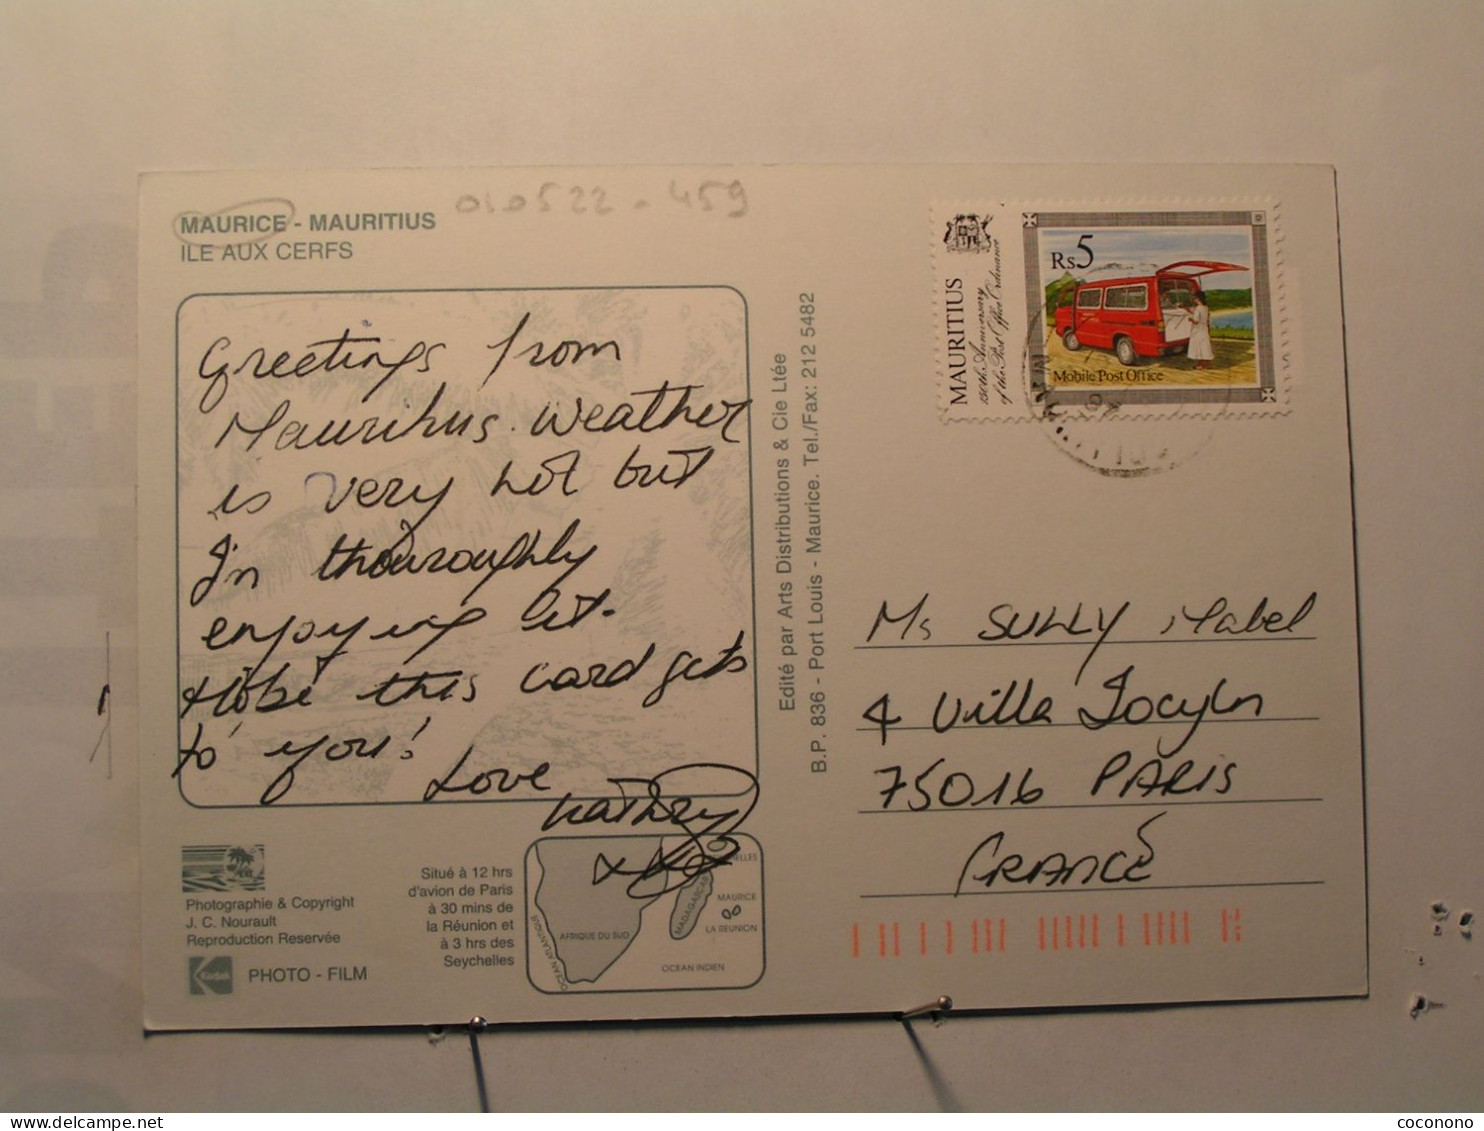 010522 - 459
MAURICE - MAURITIUS
ILE AUX CERFS
Greetings from
Mauritius. Weather
is very hot but
I'n thouroughly
enjoying it.
Hope this card gets
to you!
Love
Kathry
Photographie & Copyright
J. C. Nourault
Reproduction Reservée
Kodak
PHOTO - FILM
Situé à 12 hrs
d'avion de Paris
à 30 mins de
la Réunion et
à 3 hrs des
Seychelles
OCEAN ATLANTIQUE
AFRIQUE DU SUD
MADAGASCAR
MAURICE
LA REUNION
OCEAN INDIEN
Edité par Arts Distributions & Cie Ltée
B.P. 836 - Port Louis - Maurice. Tel./Fax: 212 5482
MAURITIUS
150th Anniversary
of the Post Office Ordinance
Rs5
Mobile Post Office
Ms SULLY Mabel
4 Villa Jocyln
75016 PARIS
FRANCE
coconono